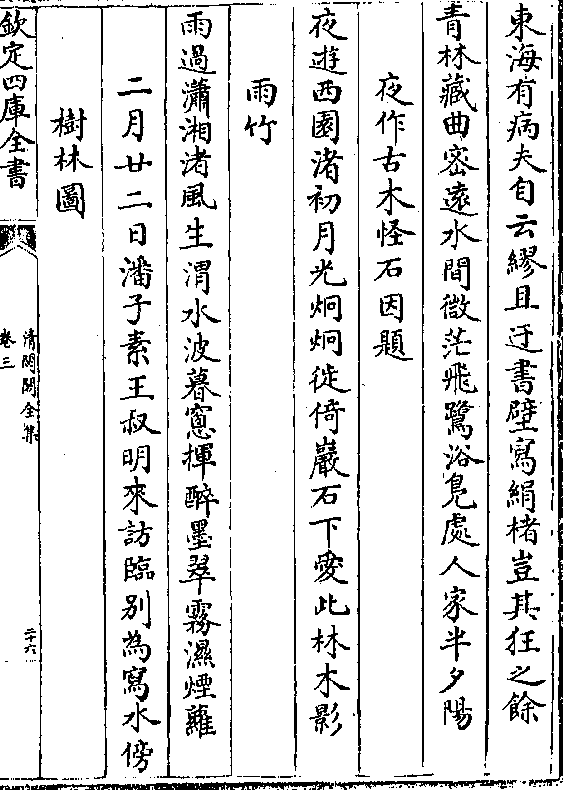 東海有病夫自云繆且迂書壁寫絹楮豈其狂之餘
青林藏曲密遠水間微茫飛鷺浴鳧處人家半夕陽
夜作古木怪石因題
夜遊西園渚初月光炯炯徙倚巖石下愛此林木影
雨竹
雨過瀟湘渚風生渭水波暮窻揮醉墨翠霧濕煙蘿
二月廿二日潘子素王叔明來訪臨别為寫水傍
樹林圖
欽定四庫全書
清閟閣全集
卷三
二十六